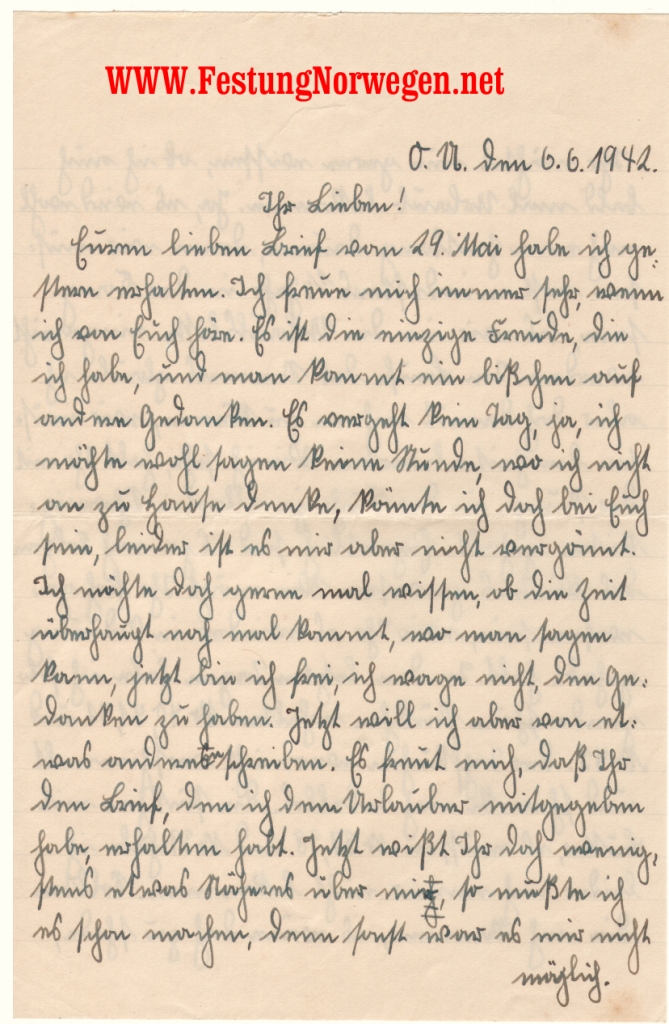 WWW.FestungNorwegen.net
O. U. den 6.6.1942.
Ihr Lieben!
Euren lieben Brief vom 29. Mai habe ich ge:
stern erhalten. Ich freue mich immer sehr, wenn
ich von Euch höre. Es ist die einzige Freude, die
ich habe, und man kommt ein bißchen auf
andere Gedanken. Es vergeht kein Tag, ja, ich
möchte wohl sagen keine Stunde, wo ich nicht
an zu Hause denke, könnte ich doch bei Euch
sein, leider ist es mir aber nicht vergönnt.
Ich möchte doch gerne mal wissen, ob die Zeit
überhaupt noch mal kommt, wo man sagen
kann, jetzt bin ich frei, ich wage nicht, den Ge:
danken zu haben. Jetzt will ich aber von et:
was anderes schreiben. Es freut mich, daß Ihr
den Brief, den ich dem Urlauber mitgegeben
habe, erhalten habt. Jetzt wißt Ihr doch wenig,
stens etwas Näheres über mich, so mußte ich
es schon machen, denn sonst war es mir nicht
möglich.